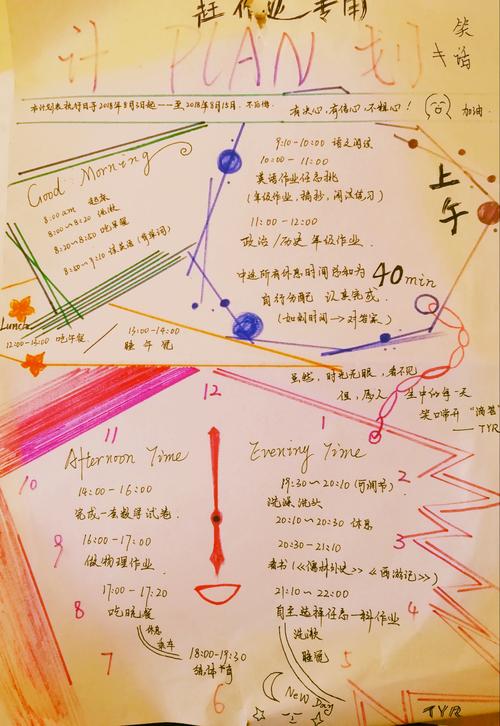 赶作业专用
计 PLAN 划
笑话
本计划表执行日于2018年8月5日起——至2018年8月15日.不后悔.
有决心,有信心,不粗心!
加油.
Good Morning
8:00 am 起床
8:00~8:20 洗漱
8:20~8:50 吃早餐
8:50~9:10 读英语(背单词)
上午
9:10-10:00 语文阅读
10:00-11:00
英语作业任意挑
(年级作业,摘抄,阅读练习)
11:00-12:00
政治/历史 年级作业.
中途所有休息时间总和为40min
自行分配 认真完成.
(如剩时间→对答案)
Lunch
12:00-13:00 吃午餐
13:00-14:00
睡午觉
虽然,时光无眼,看不见
但,历人一生中的每一天
笑口常开 "滴答"
——TYR
12
11
1
10
2
9
3
8
4
7
5
6
Afternoon Time
14:00-16:00
完成一套数学试卷.
16:00-17:00
做物理作业
17:00-17:20
吃晚餐
休息
乘车
18:00-19:30
练体育
Evening Time
19:30~20:10 (可调节)
洗澡洗头
20:10~20:30 休息
20:30-21:10
看书(《儒林外史》《西游记》)
21:10~22:00
自主选择任意一科作业
洗漱
睡觉
New Day
TYR